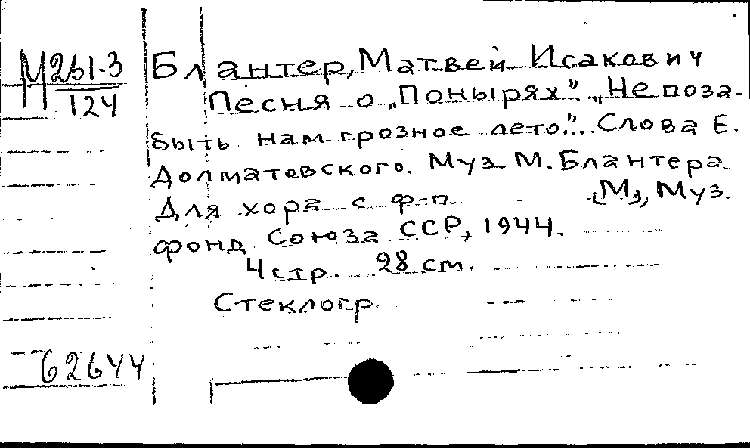 М251-3
124
Блантер, Матвей Исакович
Песня о „Понырях". „Не поза-
быть нам грозное лето". Слова Е.
Долматовского. Муз. М. Блантера
Для хора с ф-п [М], Муз.
фонд Союза ССР, 1944.
4 стр. 28 см.
Стеклогр.
62644